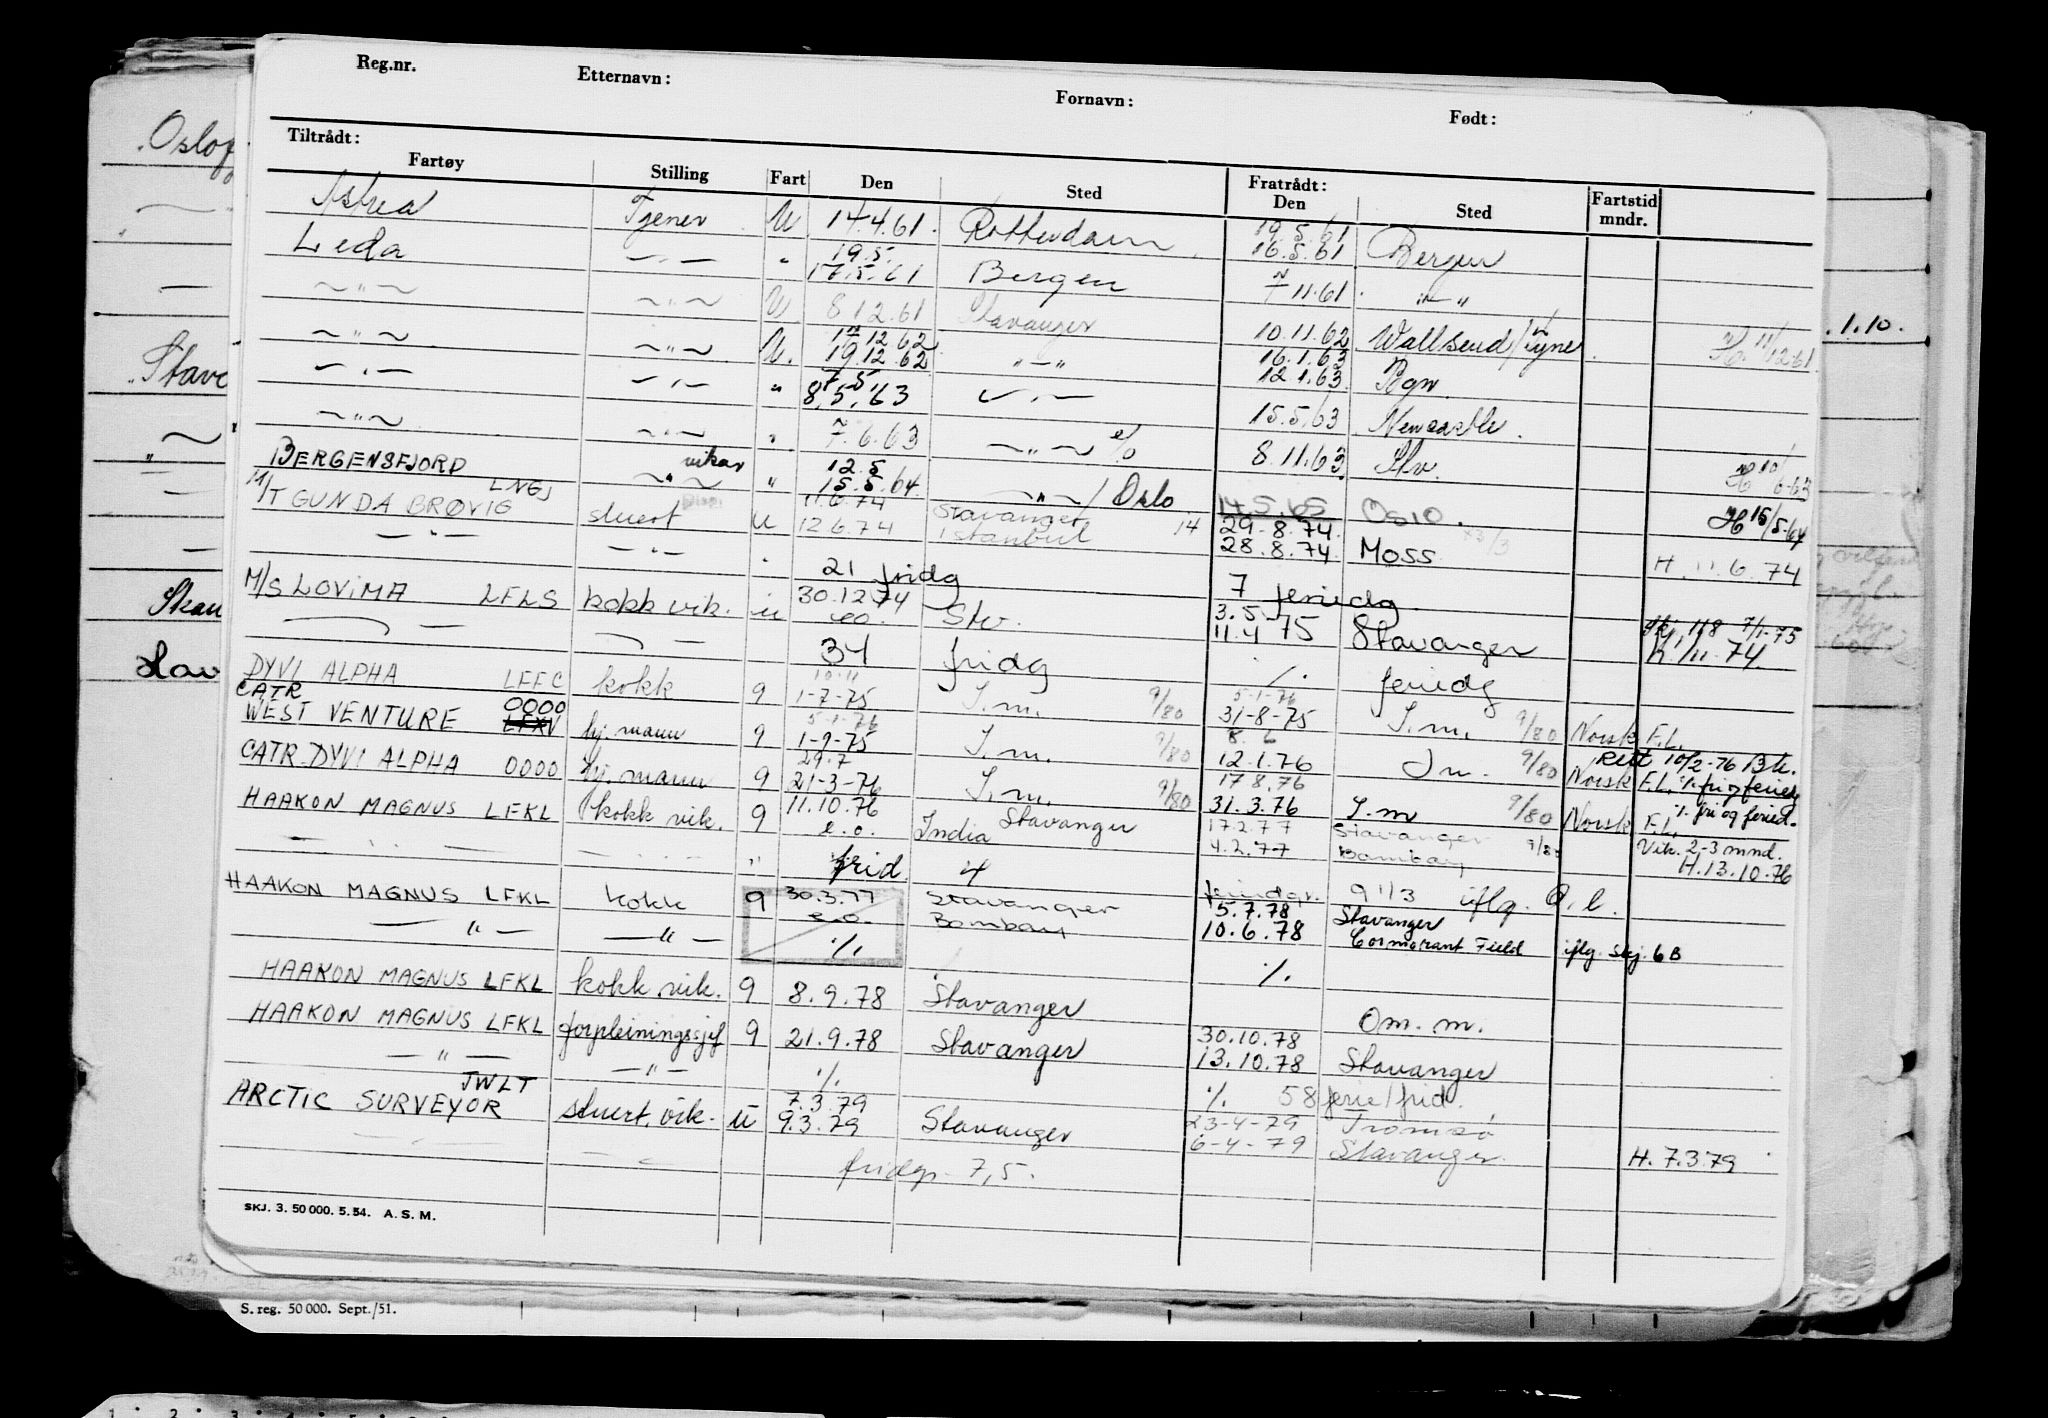 Reg.nr. Etternavn: Fornavn: Født:
Tiltrådt: Fratrådt:
Fartøy Stilling Fart Den Sted Den Sted Fartstid mndr.
Astrea Tjener U 14.4.61. Rotterdam 19.5.61 16.5.61 Bergen
Leda —„— " 19.5. 17.5.61 Bergen 7/11.61. —"—
~"~ ~"~ U 8 12.61 Stavanger 10.11.62 Wallsend/Tyne H. 11/12.61
~"~ ~"~ U. 12.62 19.12.62 —"— 16.1.63 12.1.63 Bgn.
—„— —„— " 8.5.63 —„— 15.5.63 Newcastle.
~"~ —„— " 7.6.63 ~"~ 8.11.63 Stv. 10/6-63
BERGENSFJORD vikar ~"~ " 12.5 15.5.64. ~"~ / Oslo 14.5.65 Oslo. H 15/5-64
M/T GUNDA BRØVIG LNGJ stuert U 11.6.74 12.6.74 Stavanger Istanbul 14 29-8.74. 28.8.74 Moss H. 11.6.74
—"— —"— " 21 fridg 7 feriedg.
M/S LOVIMA LFLS kokk vik. u 30.12 74 eo. Stv. 3.5. 11.4 75 Stavanger Skj. 118 7/1-75
34 fridg ./. feriedg h. 1/11.74
DYVI ALPHA LFFC kokk 9 10.11 1-7-75 I.m. 9/80 5-1-76 31-8-75 I.m. 9/80 Norsk F.L.
CATR WEST VENTURE LFXV 0000 hj. mann 9 5-1-76 1-9-75 I.m. 9/80 8. 6 12.1.76 I m. 9/80 Rett 10/2-76 Bk. Norsk F.L. ./. fri og feriedg
CATR. DYVI ALPHA 0000 hj. mann 9 29.7 21-3-76 I.m. 9/80 17 8.76 31.3.76 I.m 9/80 Norsk F.L. ./. fri og feried.
HAAKON MAGNUS LFKL kokk vik. 9 11.10.76 e.o. Stavanger India 17.2.77 4.2.77 Stavanger Bombay 9/80 Vik. 2-3 mnd. H.13.10.76
—"— " frid. 4 feriedgr. 9 1/3 iflg. Q.l.
HAAKON MAGNUS LFKL kokk 9 30.3.77 e.o. Stavanger Bombay 5.7.78 10.6.78 Stavanger Cormorant Field iflg. Skj. 6B
—"— —"— ./. ./.
HAAKON MAGNUS LFKL kokk vik. 9 8.9.78 Stavanger Om. m.
HAAKON MAGNUS LFKL forpleiningssjef 9 21.9.78 Stavanger 30.10.78 13.10.78 Stavanger
—"— —"— ./. ./. 58 ferie/frid.
ARCTIC SURVEYOR JWLT stuert. vik. u 7.3.79 9.3.79 Stavanger 23-4-79 6-4-79 Tromsø Stavanger. H. 7.3.79
fridgr. 7,5.
SKJ. 3. 50 000. 5.54. A. S. M.
S. reg. 50 000. Sept./51.
Stav
.1.10.